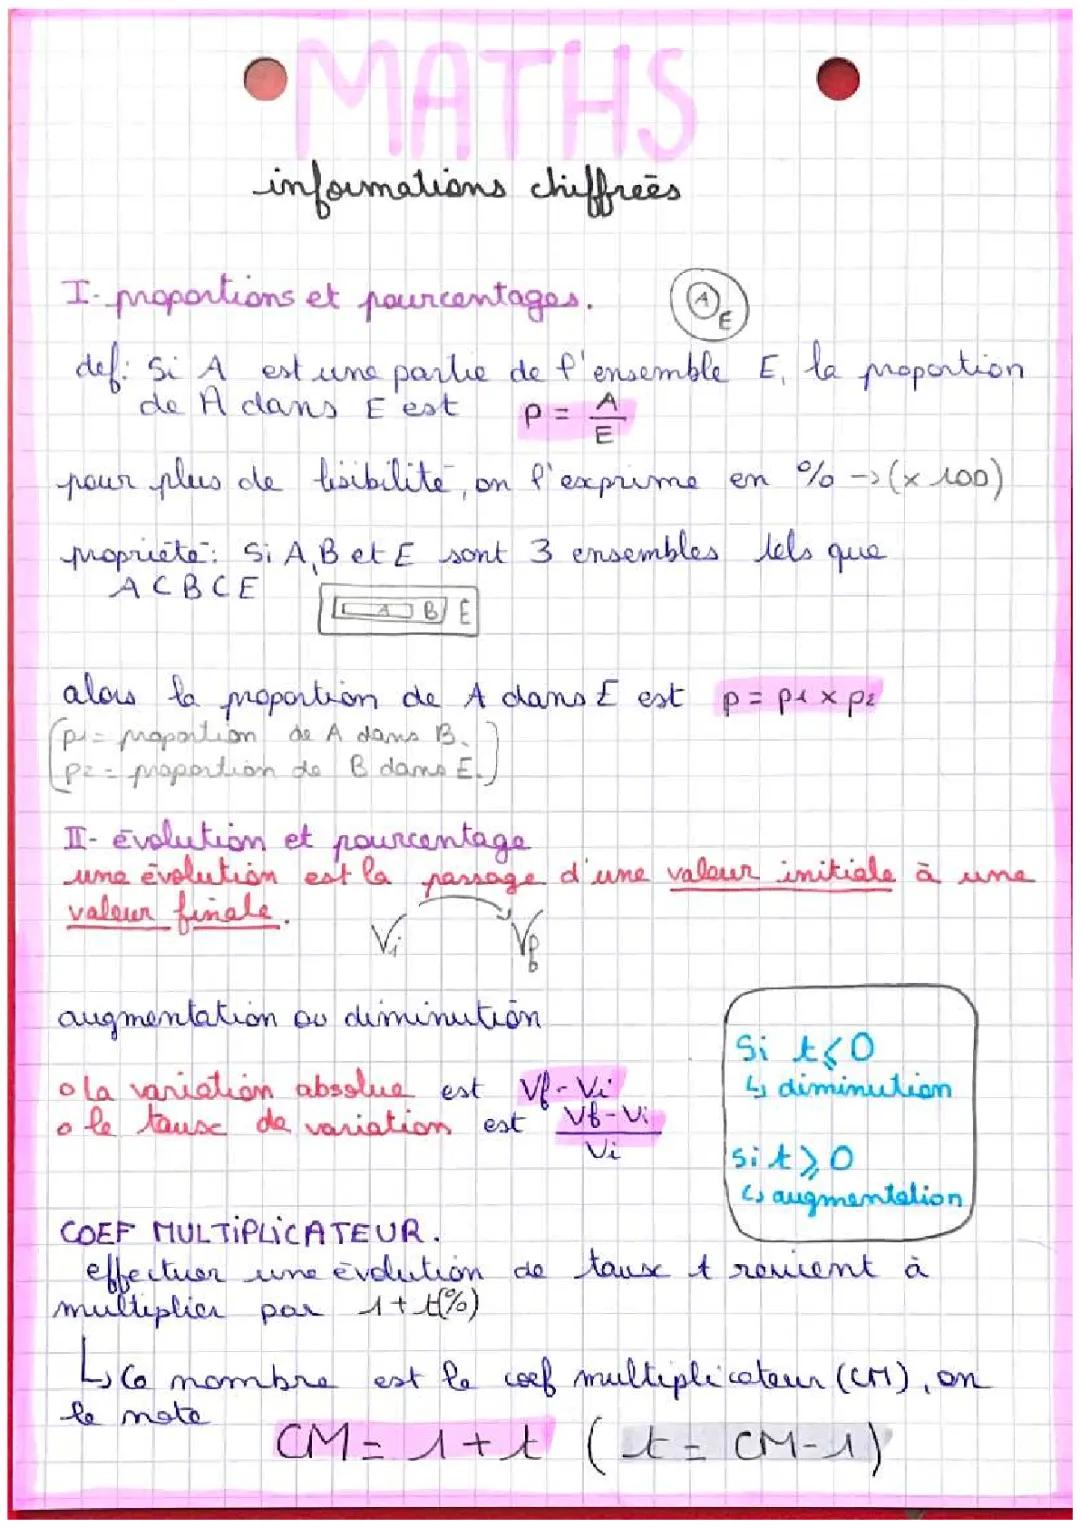 MATHS
informations chiffrées
I- proportions et pourcentages.
A
E
def: Si A est une partie de l'ensemble E, la proportion
de A dans E est p = A/E
pour plus de lisibilité, on l'exprime en % → (x 100)
propriété: Si A, B et E sont 3 ensembles tels que
A ⊂ B ⊂ E
A B E
alors la proportion de A dans E est p = p1 x p2
(p1 = proportion de A dans B.
p2 = proportion de B dans E.)
II- évolution et pourcentage
une évolution est la passage d'une valeur initiale à une
valeur finale.
Vi Vf
augmentation ou diminution
o la variation absolue est Vf - Vi
o le taux de variation est (Vf - Vi)/Vi
Si t ⩽ 0
↳ diminution
si t ⩾ 0
↳ augmentation
COEF MULTIPLICATEUR.
effectuer une évolution de taux t revient à
multiplier par 1 + t(%)
↳ Ce nombre est le coef multiplicateur (CM), on
le note
CM = 1 + t (t = CM - 1)